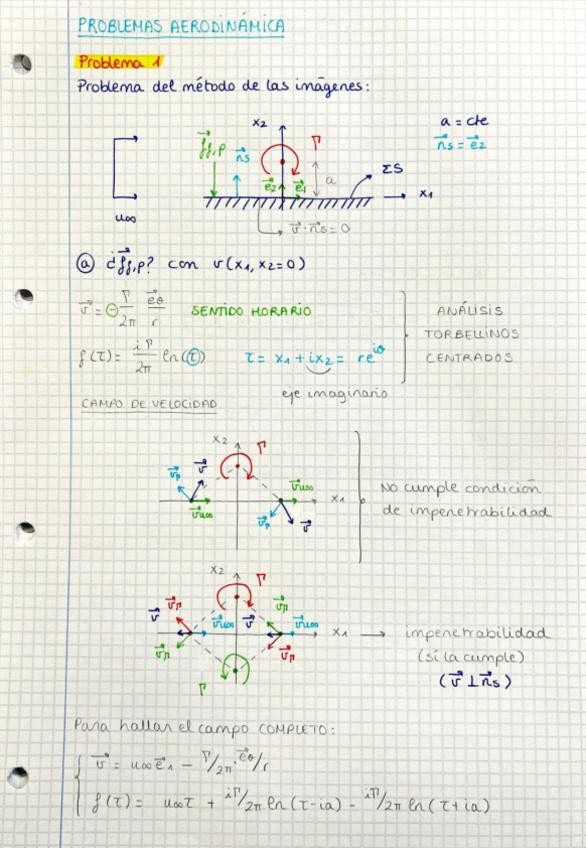 PROBLEMAS AERODINÁMICA
Problema 1
Problema del método de las imágenes:
x2 Γ a = cte
f⃗f,p n⃗s n⃗s = e⃗2
e⃗2 e⃗1 a ΣS
x1
u∞ v⃗·n⃗s = 0
ⓐ ¿f⃗f,p? con v(x1, x2=0)
v⃗ = ⊖ Γ/2π e⃗θ/r SENTIDO HORARIO
f(τ) = iΓ/2π ln(τ) τ = x1 + ix2 = re^iθ
ANÁLISIS
TORBELLINOS
CENTRADOS
eje imaginario
CAMPO DE VELOCIDAD
x2 Γ
v⃗Γ v⃗ v⃗u∞
v⃗u∞ v⃗Γ v⃗ x1
No cumple condición
de impenetrabilidad
x2 Γ
v⃗Γ v⃗Γ
v⃗ v⃗u∞ v⃗ v⃗u∞ x1
v⃗Γ v⃗Γ
Γ
impenetrabilidad
(sí la cumple)
(v⃗ ⊥ n⃗s)
Para hallar el campo COMPLETO:
v⃗ = u∞e⃗1 − Γ/2π · e⃗θ/r
f(τ) = u∞τ + iΓ/2π ln(τ-ia) − iΓ/2π ln(τ+ia)